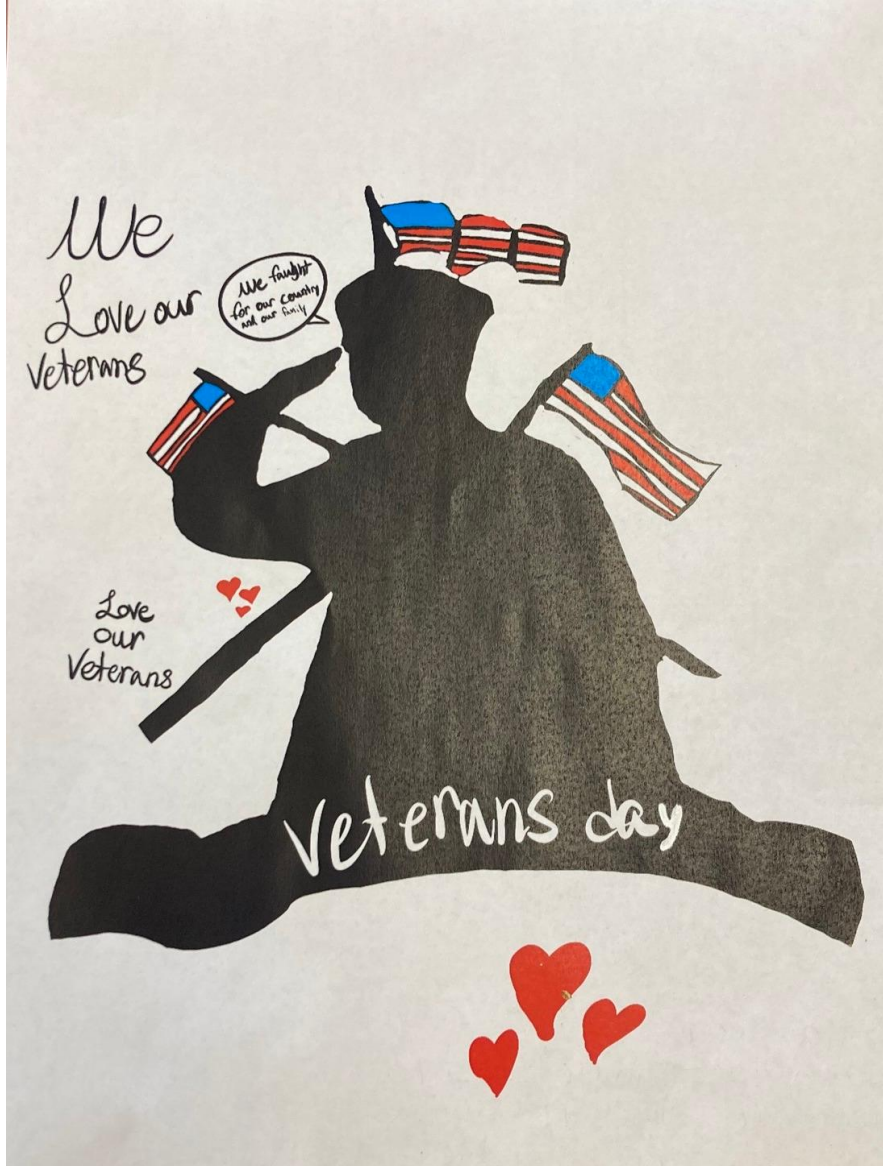 We
Love our
Veterans
We faught
for our country
and our family
Love
our
Veterans
Veterans day